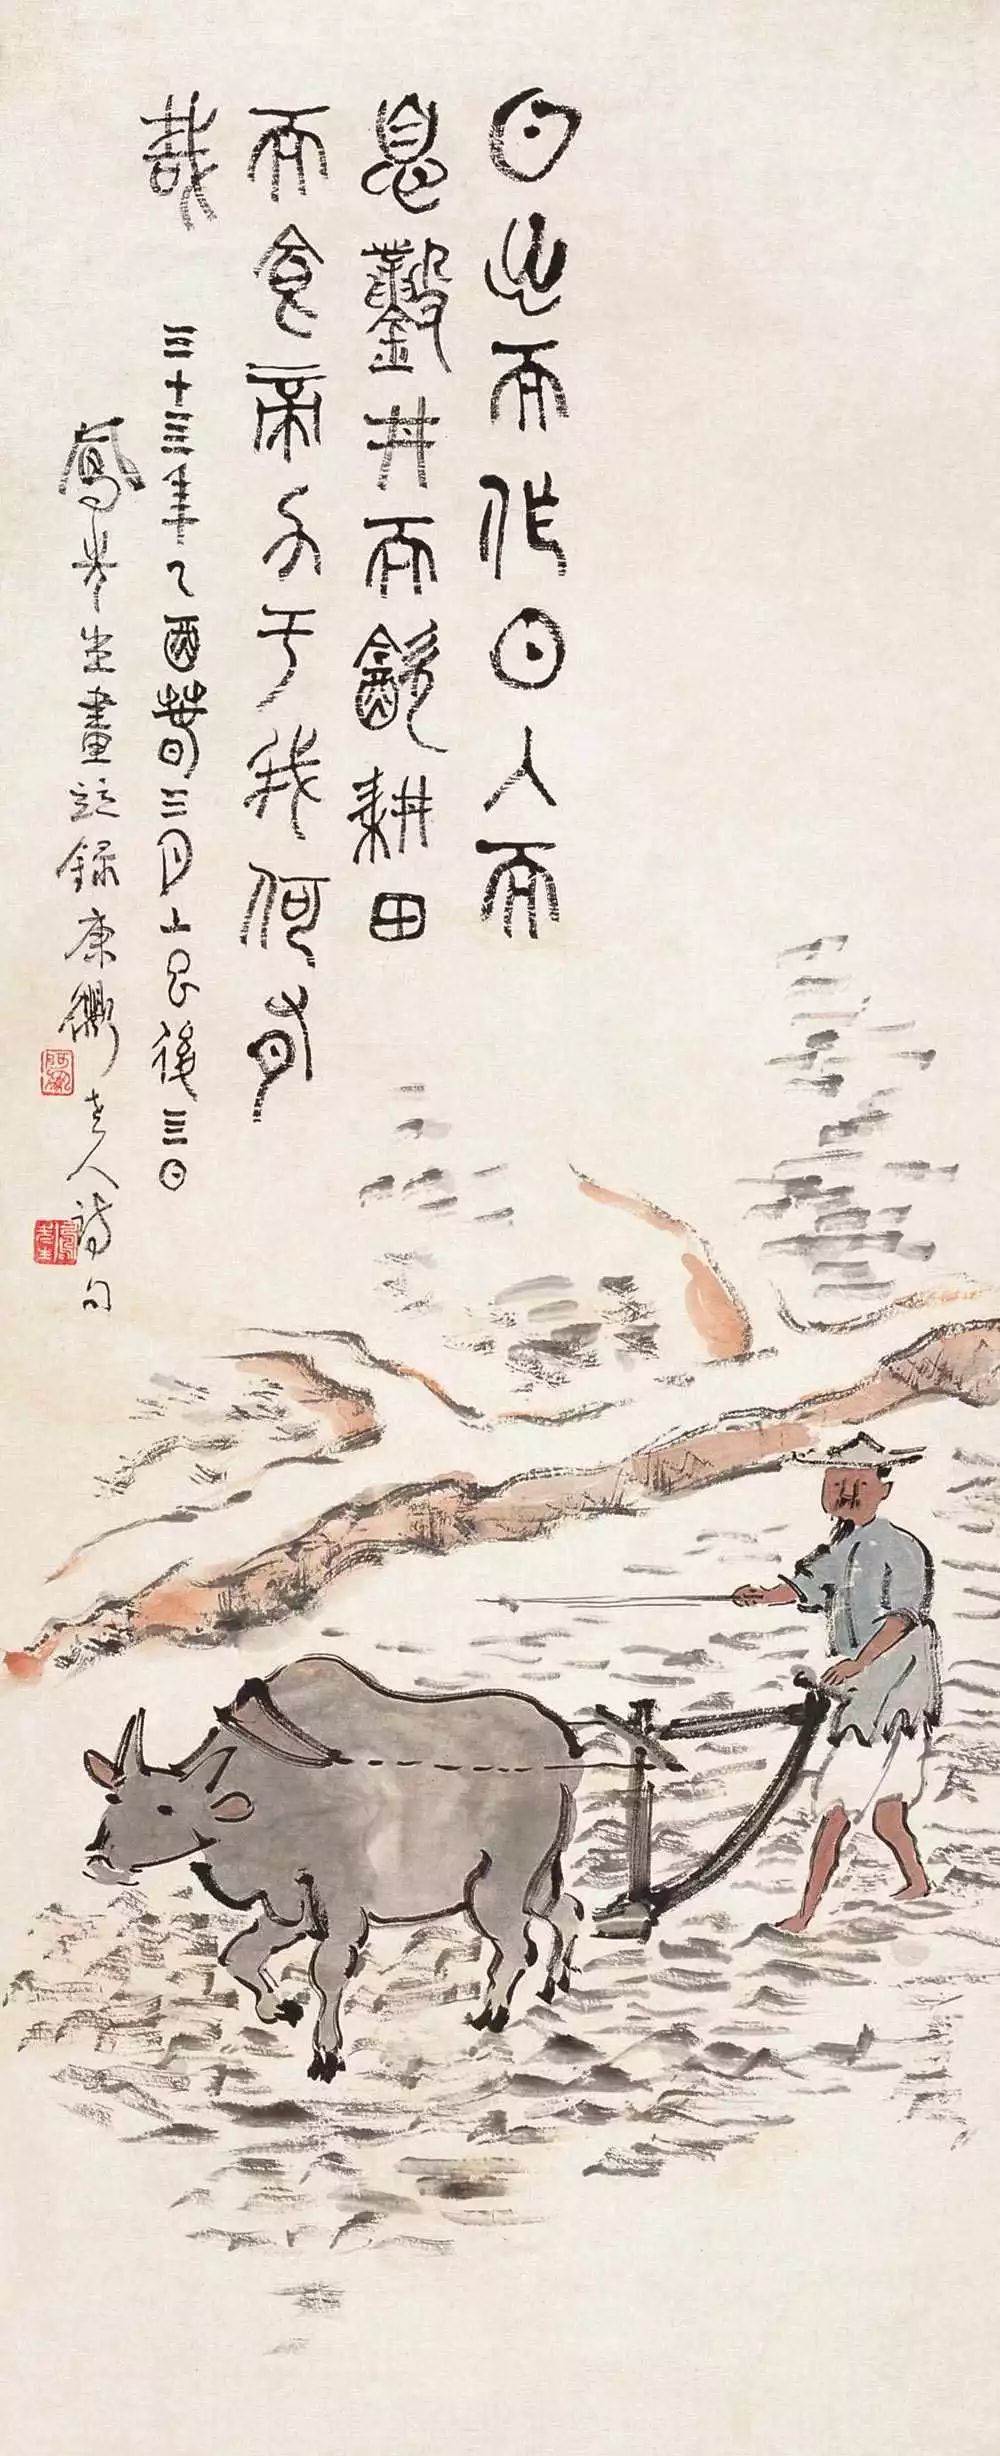 日出而作日入而
息鑿井而飲耕田
而食帝力于我何有
哉
三十亖年乙酉春三月上巳後三日
鳳先生畫竝錄康衢老人詩句